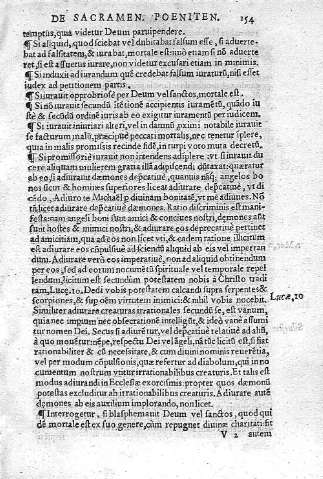 DE SACRAMEN. POENITEN. 154
temptus, qua videtur Deum paruipendere.
¶ Si aliquid, quod sciebat vel dubitabat falsum esse, si aduerte-
bat ad falsitatẽ, & iurabat, mortale est: nõ etiam si nõ aduerte
ret, si est assuetus iurare, non videtur excusari etiam in minimis.
¶ Si induxit ad iurandum quẽ credebat falsum iuraturũ, nisi esset
iudex ad petitionem partis.
¶ Si iurauit opprobriosè per Deum vel sanctos, mortale est.
¶ Si nõ iurauit secundũ itẽtionẽ accipientis iuramẽtũ, quãdo iu
stè & secũdũ ordinẽ iuris ab eo exigitur iuramẽtũ per iudicem.
¶ Si iurauit iniuriari alteri, vel in damnũ proximi notabile iurauit
se facturum malũ, præcipuè peccati mortalis, nec tenetur iplere,
quia in malis promissis recinde fidẽ, in turpi voto muta decretũ.
¶ Si promissoriè iurauit non intendens adiplere: vt si iuraui du
cere aliquam mulierem gratia illã adipiscendi, dũtaxat: quæratur
ab eo, si adiurauit dæmones deprecatiuè, quamuis nãq́; angelos bo
nos sicut & homines superiores liceat adiurare deprecatiuè, vt di
cẽdo, Adiuro te Michaël p̃ diuinam bonitatẽ, vt me adiuues. Nõ
tñ licet adiurare deprecatiuè dæmones. Ratio discriminis est mani-
festa: nam angeli boni sunt amici & conciues nostri, demones aũt
sunt hostes & inimici nostri, & adiurare eos deprecatiuè pertinet
ad amicitiam, quã ad eos non licet vti, & eadem ratione illicitum
est adiurare eos cõpulsiuè ad sciendũ aliquid ab eis vel impetran
dum. Adiurare verò eos imperatiuè, non ad aliquid obtinendum
per eos, sed ad eorum nocumẽtũ spirituale vel temporale repel
lendum, licitum est secundum potestatem nobis à Christo tradi
tam, Lucę. 10. Dedi vobis potestatem calcandi supra serpentes &
scorpiones, & sup oẽm virtutem inimici: & nihil vobis nocebit. Lucæ, 10
Similiter adiurare creaturas irrationales secundũ se, est vanum,
quia nec impum nec obsecrationẽ intelligũt, & ideò vanè assumi
tur nomen Dei. Secus si adiurẽtur, vel depcatiuè vel relatiuè ad alm̃,
à quo mouẽtur: nẽpe, respectu Dei vel ãgeli, nã sic licitũ est, si fiat
rationabiliter & cũ necessitate, & cum diuini nominis reuerẽtia,
vel per modum cõpulsionis, quæ refertur ad diabolum, qui in no
cumentum nostrum vtitur irrationabilibus creaturis. Et talis est
modus adiurandi in Ecclesiæ exorcismis: propter quos dæmonũ
potestas excluditur ab irrationabilibus creaturis. Adiurare autẽ
dæmones ab eis auxilium implorando, non licet.
¶ Interrogetur, si blasphemauit Deum vel sanctos, quod qui
dẽ mortale est ex suo genere, cùm repugnet diuinæ charitati: sit
V 2 autem